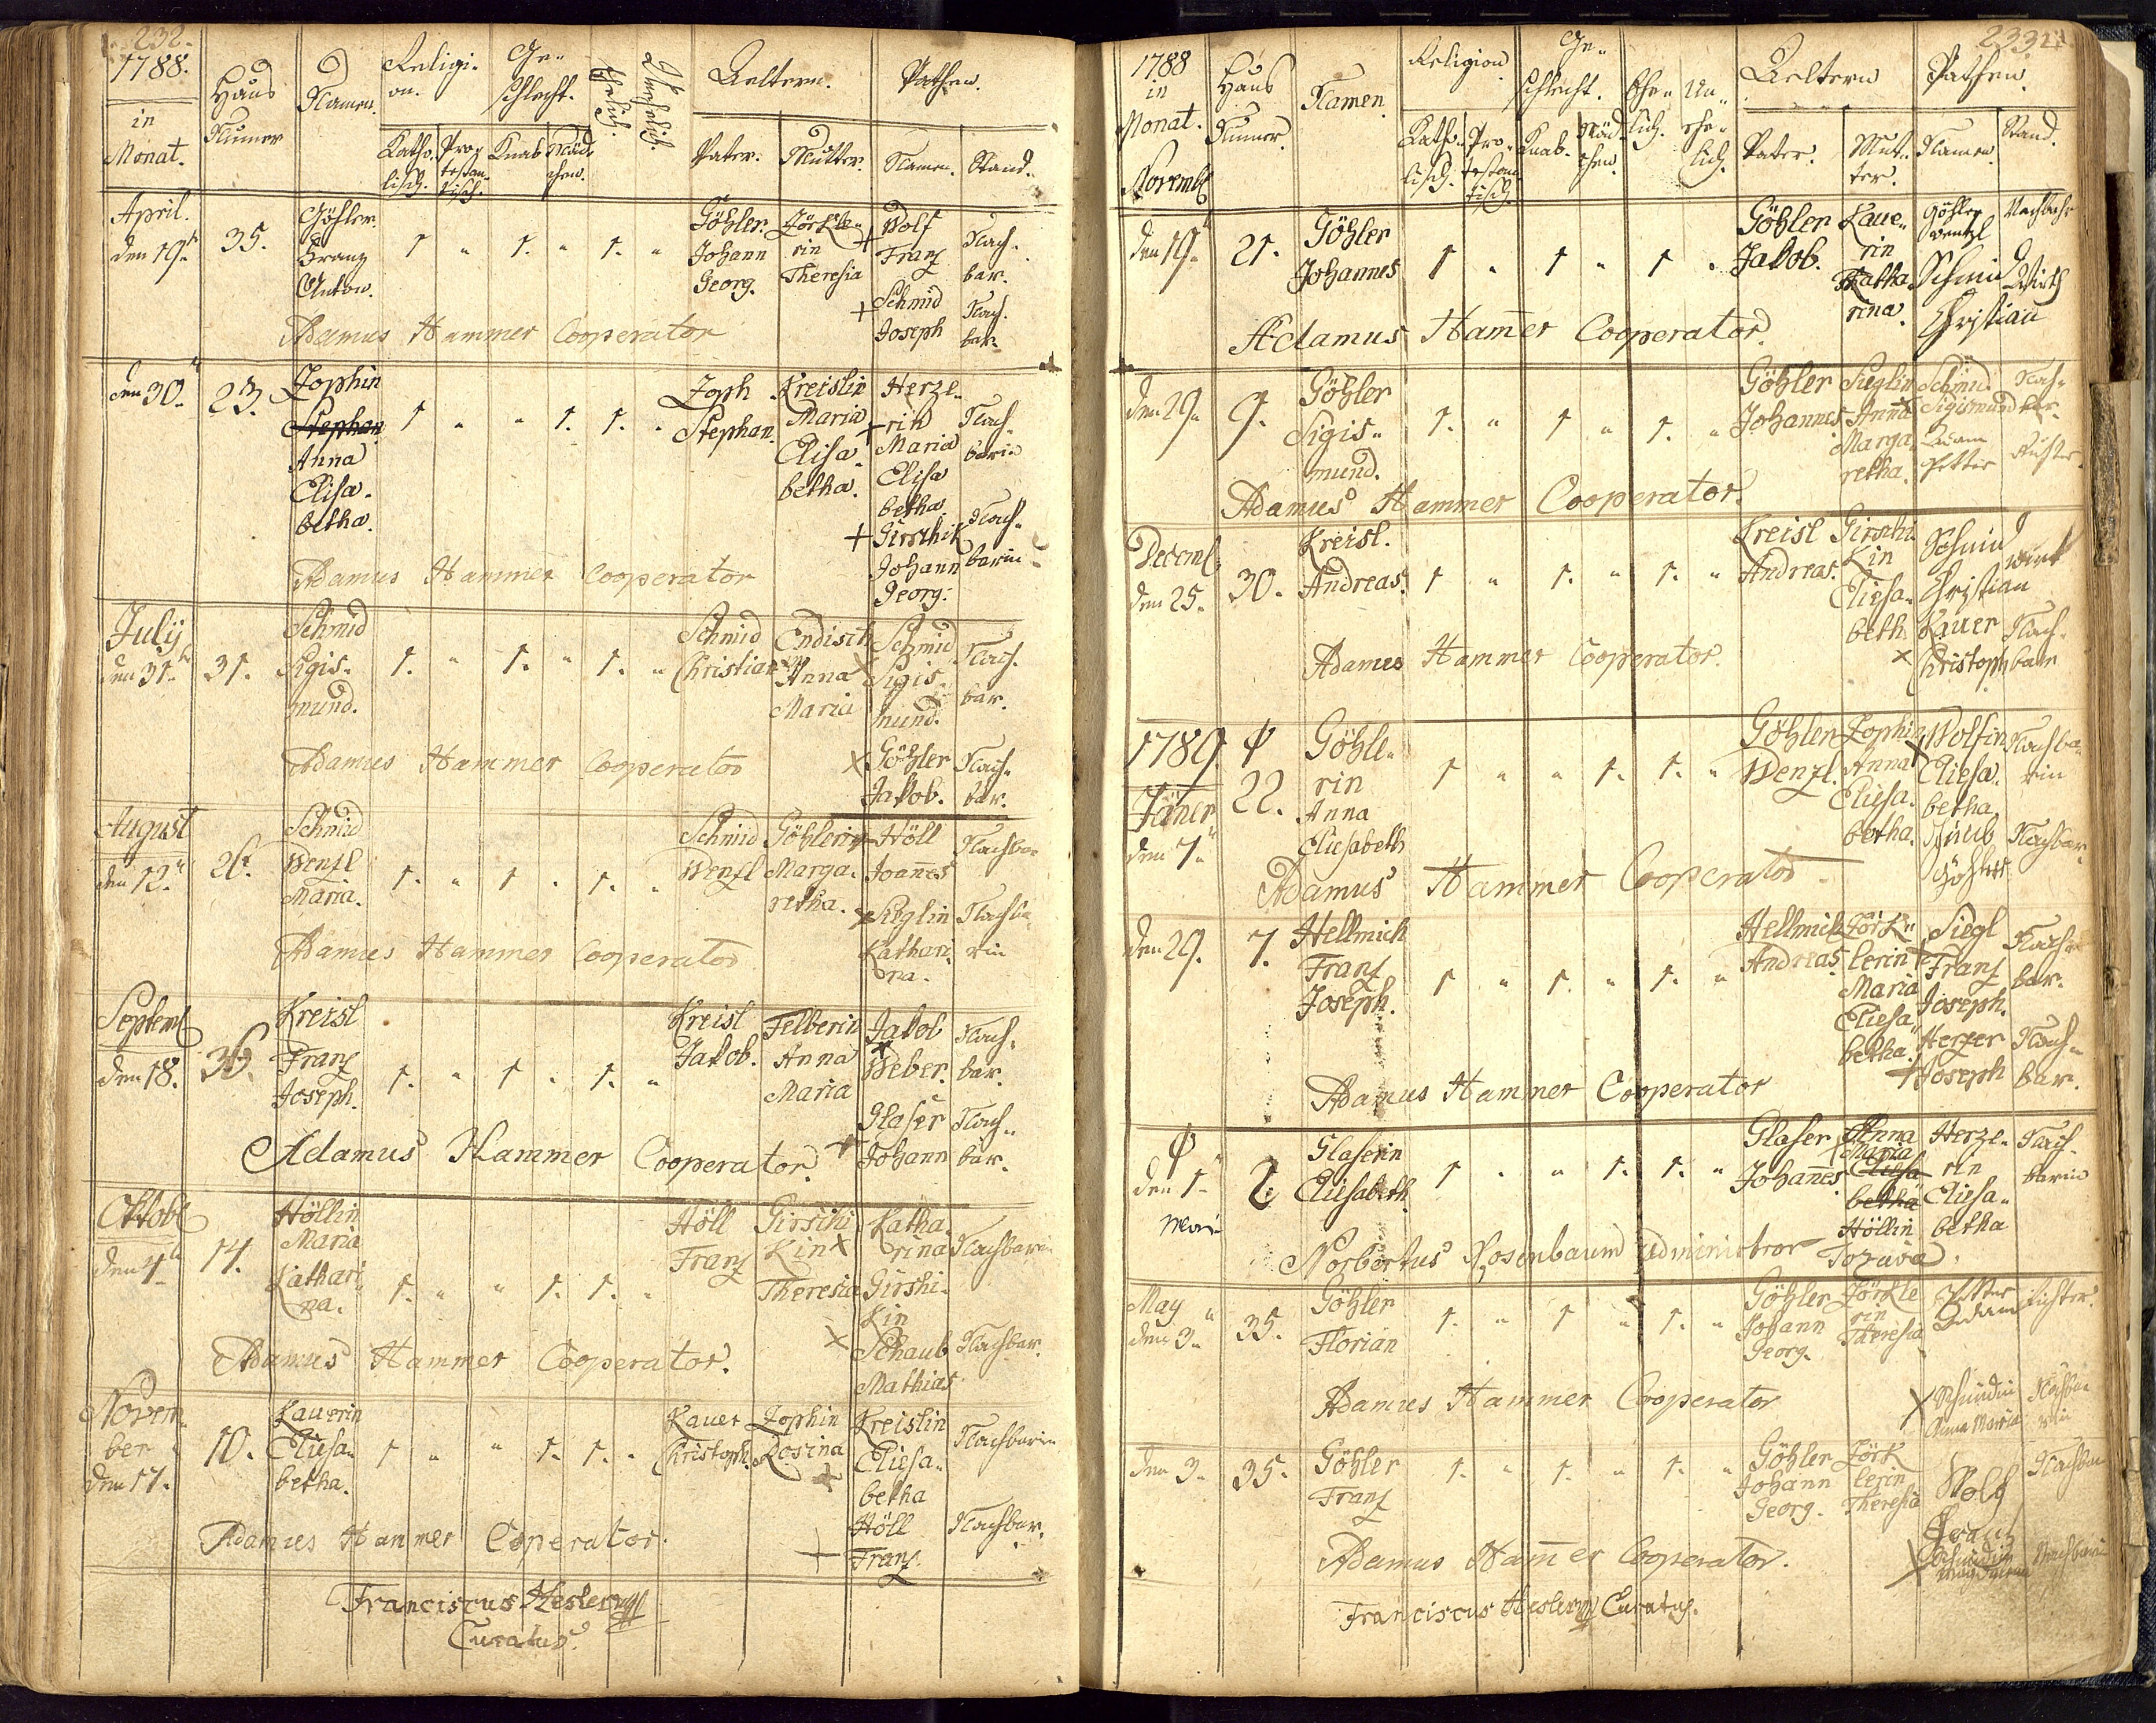 232.
1788.
in
Monat.
Haus
Numer
Namen.
Religi-
on.
Ge-
schlecht.
Ehelich.
Unehelich.
Aeltern.
Pathen.
Katho-
lisch.
Pro-
testan-
tisch.
Knab
Mäd-
chen.
Vater.
Mutter.
Namen.
Stand.
April.
den 19.
35.
Göhler
Franz
Anton.
1 " 1. " 1. "
Göhler
Johann
Georg.
Zörkle-
rin
Theresia
+ Wolf
Franz
Nach-
bar.
+ Schmid
Joseph
Nach-
bar
Adamus Hammer Cooperator
den 30.
23.
Zophin
Stephan
Anna
Elisa-
betha.
1 " " 1. 1. "
Zoph
Stephan.
Kreislin
Maria
Elisa-
betha.
Herze-
+ rin
Maria
Elisa
betha
Nach-
barin
+ Girschik
Johann
Georg.
Nach-
barin
Adamus Hammer Cooperator
July
den 31.
31.
Schmid
Sigis-
mund.
1. " 1. " 1. "
Schmid
Christian
Endisch
Anna
Maria
Schmid
x Sigis-
mund.
Nach-
bar.
x Göhler
Jakob.
Nach-
bar.
Adamus Hammer Cooperator
August
den 12.
26.
Schmid
Wenzl
Maria.
1. " 1 " 1. "
Schmid
Wenzl
Göhlerin
Marga-
retha.
Höll
Joannes
Nachbar
x Sieglin
Kathari-
na.
Nachba-
rin
Adamus Hammer Cooperator
Septemb
den 18.
36.
Kreisl
Franz
Joseph.
1. " 1 " 1. "
Kreisl
Jakob.
Felberin
Anna
Maria
Jakob
x
Weber.
Nach-
bar.
Glaser
+ Johann
Nach-
bar.
Adamus Hammer Cooperator.
Oktobe
den 4.
14.
Höllin
Maria
Kathari-
na.
1. " " 1. 1. "
Höll
Franz
Girschi-
kin x
Theresia
Katha-
rina
Girshi-
kin
Nachbarin
x Schaub
Mathias
Nachbar.
Adamus Hammer Cooperator.
Novem-
ber
den 17.
10.
Kauerin
Eliesa-
betha.
1 " " 1. 1. "
Kauer
Christoph.
Zophin
Rosina
+
Kreislin
Eliesa-
betha
Nachbarin
Höll
+ Franz
Nachbar.
Adamus Hammer Coperator.
Franciscus Hesler
Curatus.
233
1788
in
Monat.
Novemb
Haus
Numer.
Namen
Religion
Ge-
schlecht.
Ehe-
lich.
Un-
ehe-
lich.
Aeltern
Pathen.
Katho-
lisch.
Pro-
testan-
tisch
Knab-
Mäd-
chen.
Vater.
Mut-
ter.
Namen.
Stand.
den 19.
21.
Göhler
Johannes
1 " 1 " 1 "
Göhler
Jakob.
Kaue-
rin
Katha-
rina.
Göhler
Wenzl
Nachbahr
Schmid
Christian
Wirth
Adamus Hammer Cooperator.
den 29.
9.
Göhler
Sigis-
mund.
1. " 1 " 1. "
Göhler
Johannes
Sieglin
Anna
Marga-
retha.
Schmid
Sigismund
Nach-
bar.
Adam
Petter
Richter.
Adamus Hammer Cooperator.
Decemb
den 25.
30.
Kreisl.
Andreas.
1 " 1. " 1. "
Kreisl
Andreas.
Girschi-
kin
Eliesa-
beth
Schmid
Christian
Wirth
Kauer
x Christoph
Nach-
barn
Adamus Hammer Cooperator.
1789.
Jäner
den 7.
22.
Göhle-
rin
Anna
Eliesabeth
1 " " 1. 1. "
Göhler
Wenzl.
Zophin
Anna
Eliesa-
betha.
x Wolfin
Eliesa-
betha
Nachba-
rin
Nachbar.
Adamus Hammer Cooperator.
den 29.
7.
Hellmich
Franz
Joseph.
1 " 1. " 1. "
Hellmich
Andreas
Zörk-
lerin
Maria
Eliesa-
betha.
Siegl
+ Franz
Joseph.
Nach-
bar.
Herzer
+ Joseph
Nach-
bar.
Adamus Hammer Cooperator
den 1.
Mari
2.
Glaserin
Eliesabeth.
1 " " 1. 1. "
Glaser
Johannes.
Anna
Maria
Eliesa
betha
Höllin
Herze-
rin
Eliesa-
betha
Nach-
barin
Norbertus Rosenbaum Administrator
May
den 3.
35.
Göhler
Florian
1. " 1 " 1. "
Göhler
Johann
Georg.
Zörkle
rin
Theresia
Petter
Adam
Richter.
x Schmidin
Anna Maria
Nachba-
rin
Adamus Hammer Cooperator
den 3.
35.
Göhler
Franz
1. " 1. " 1. "
Göhler
Johann
Georg.
Zörk
lerin
Theresia
Wolf
Franz
Nachbar
x Schmidin
Nachbarin
Adamus Hammer Cooperator.
Franciscus Hesler Curatus.